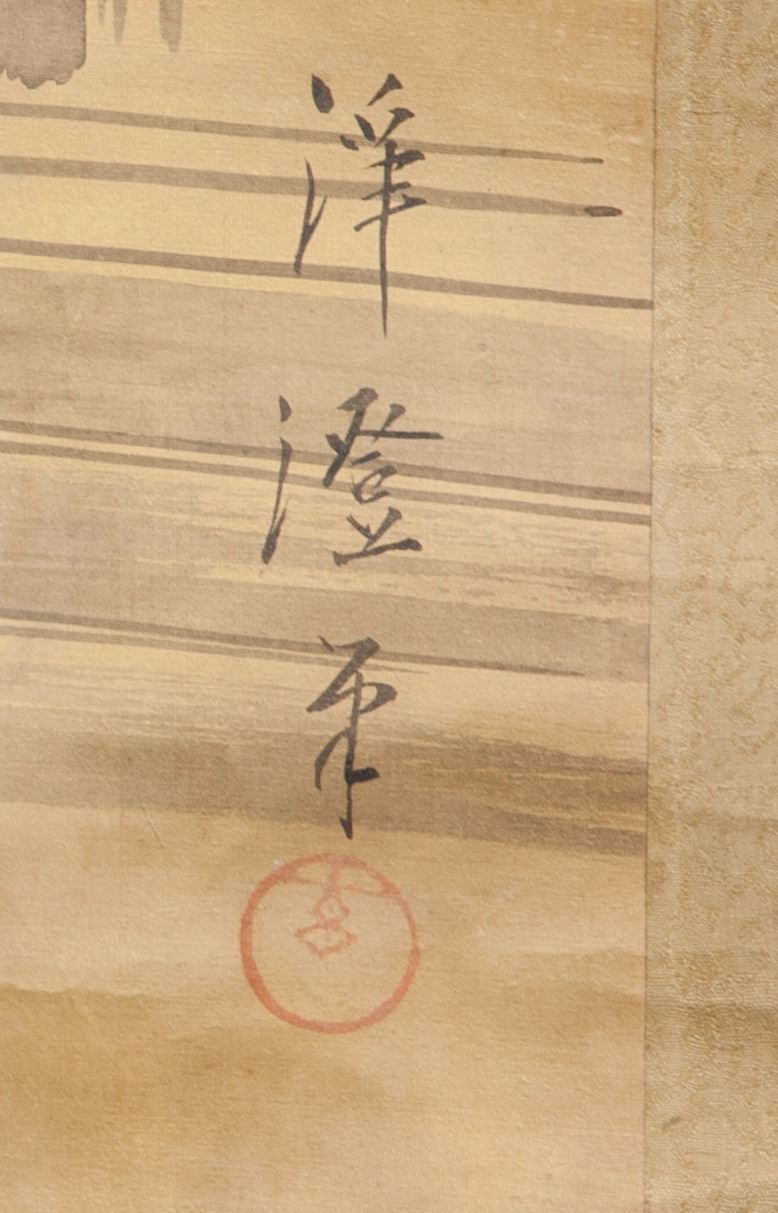 洋澄筆